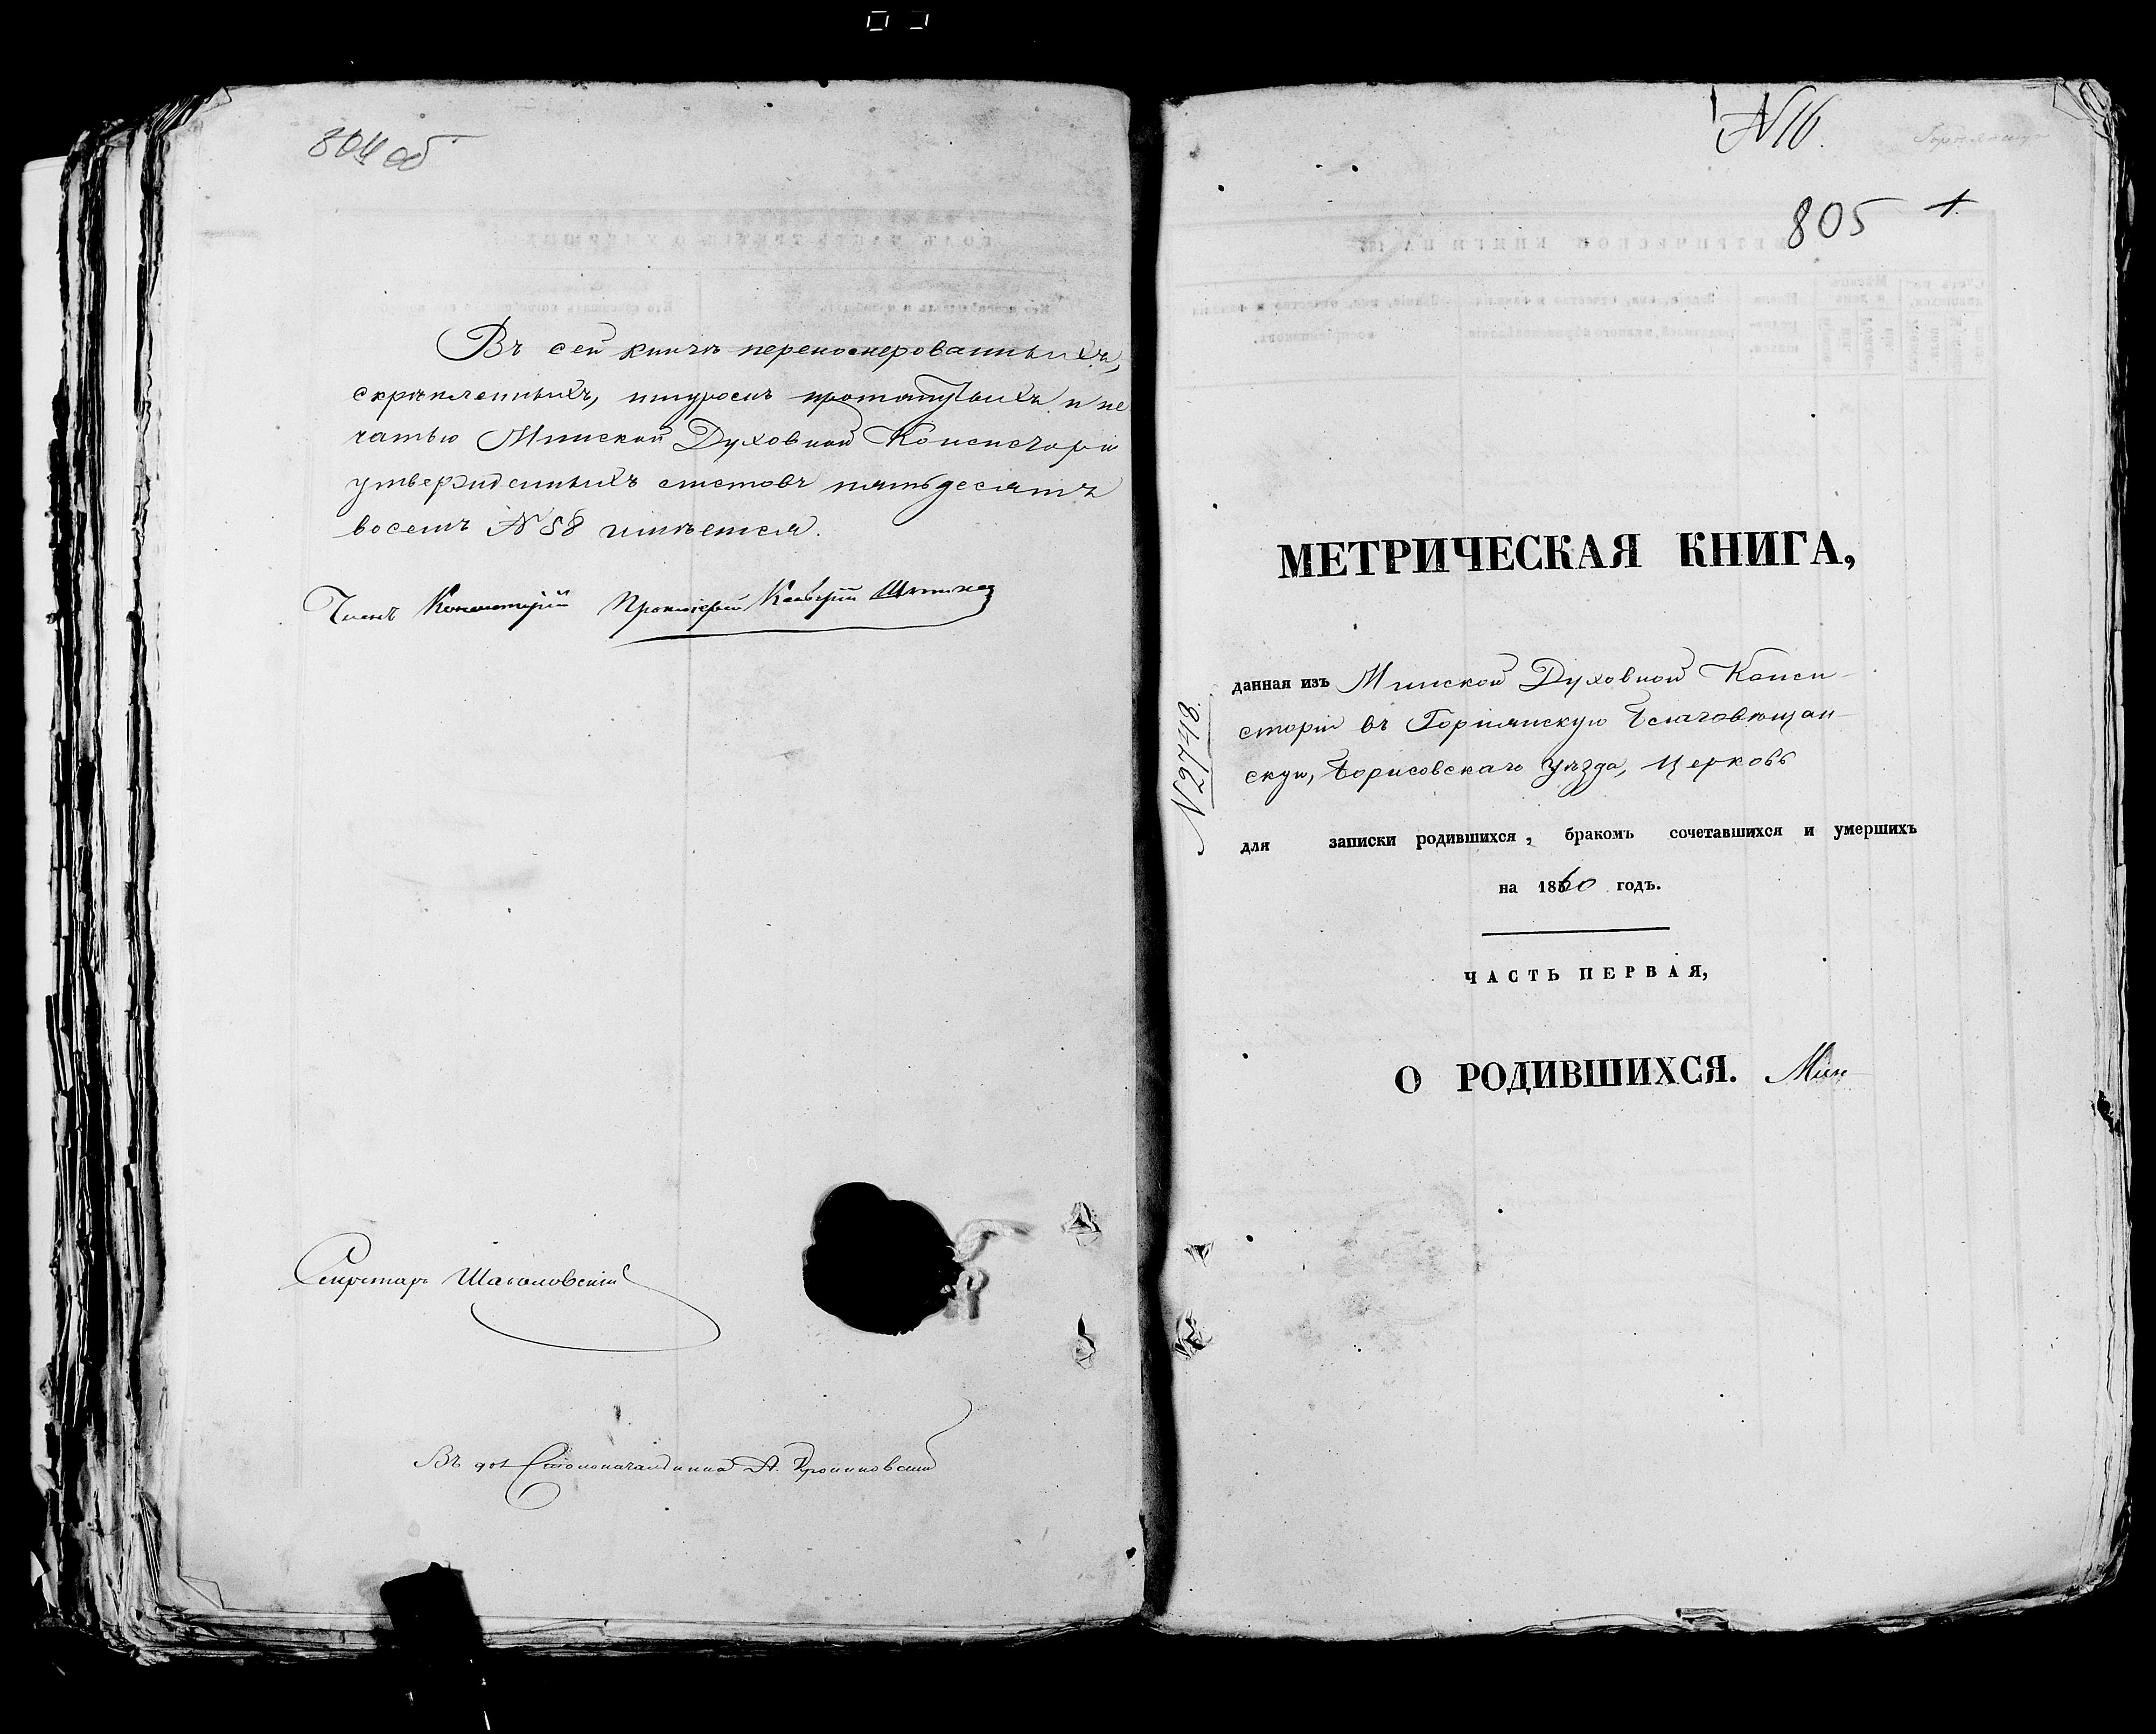 804 об
Въ сей книгѣ перенумерованныхъ,
скрѣпленныхъ, шнуромъ протянутыхъ и пе
чатью Минской Духовной Консисторіи
утвержденныхъ листовъ пятьдесятъ
восемь N 58 имѣется.
Членъ Консисторіи Протоіерей
Секретарь
Въ дол. Столоначальника А.
N 16.
805 1
МЕТРИЧЕСКАЯ КНИГА,
данная изъ Минской Духовной Конси
сторіи въ Горнянскую Благовѣщен
скую, Борисовскаго уѣзда, церковь
N 2748
для записки родившихся, бракомъ сочетавшихся и умершихъ
на 1860 годъ.
ЧАСТЬ ПЕРВАЯ,
О РОДИВШИХСЯ. Мин